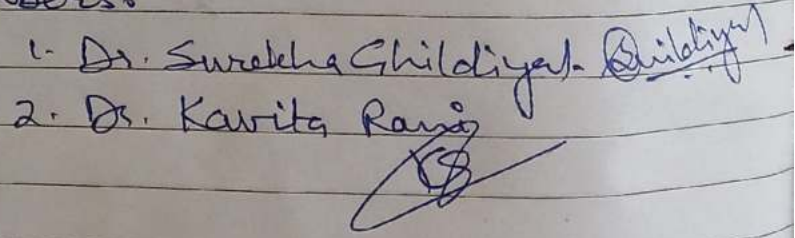 1. Dr. Surekha Ghildiyal. Ghildiyal
2. Dr. Kavita Rani